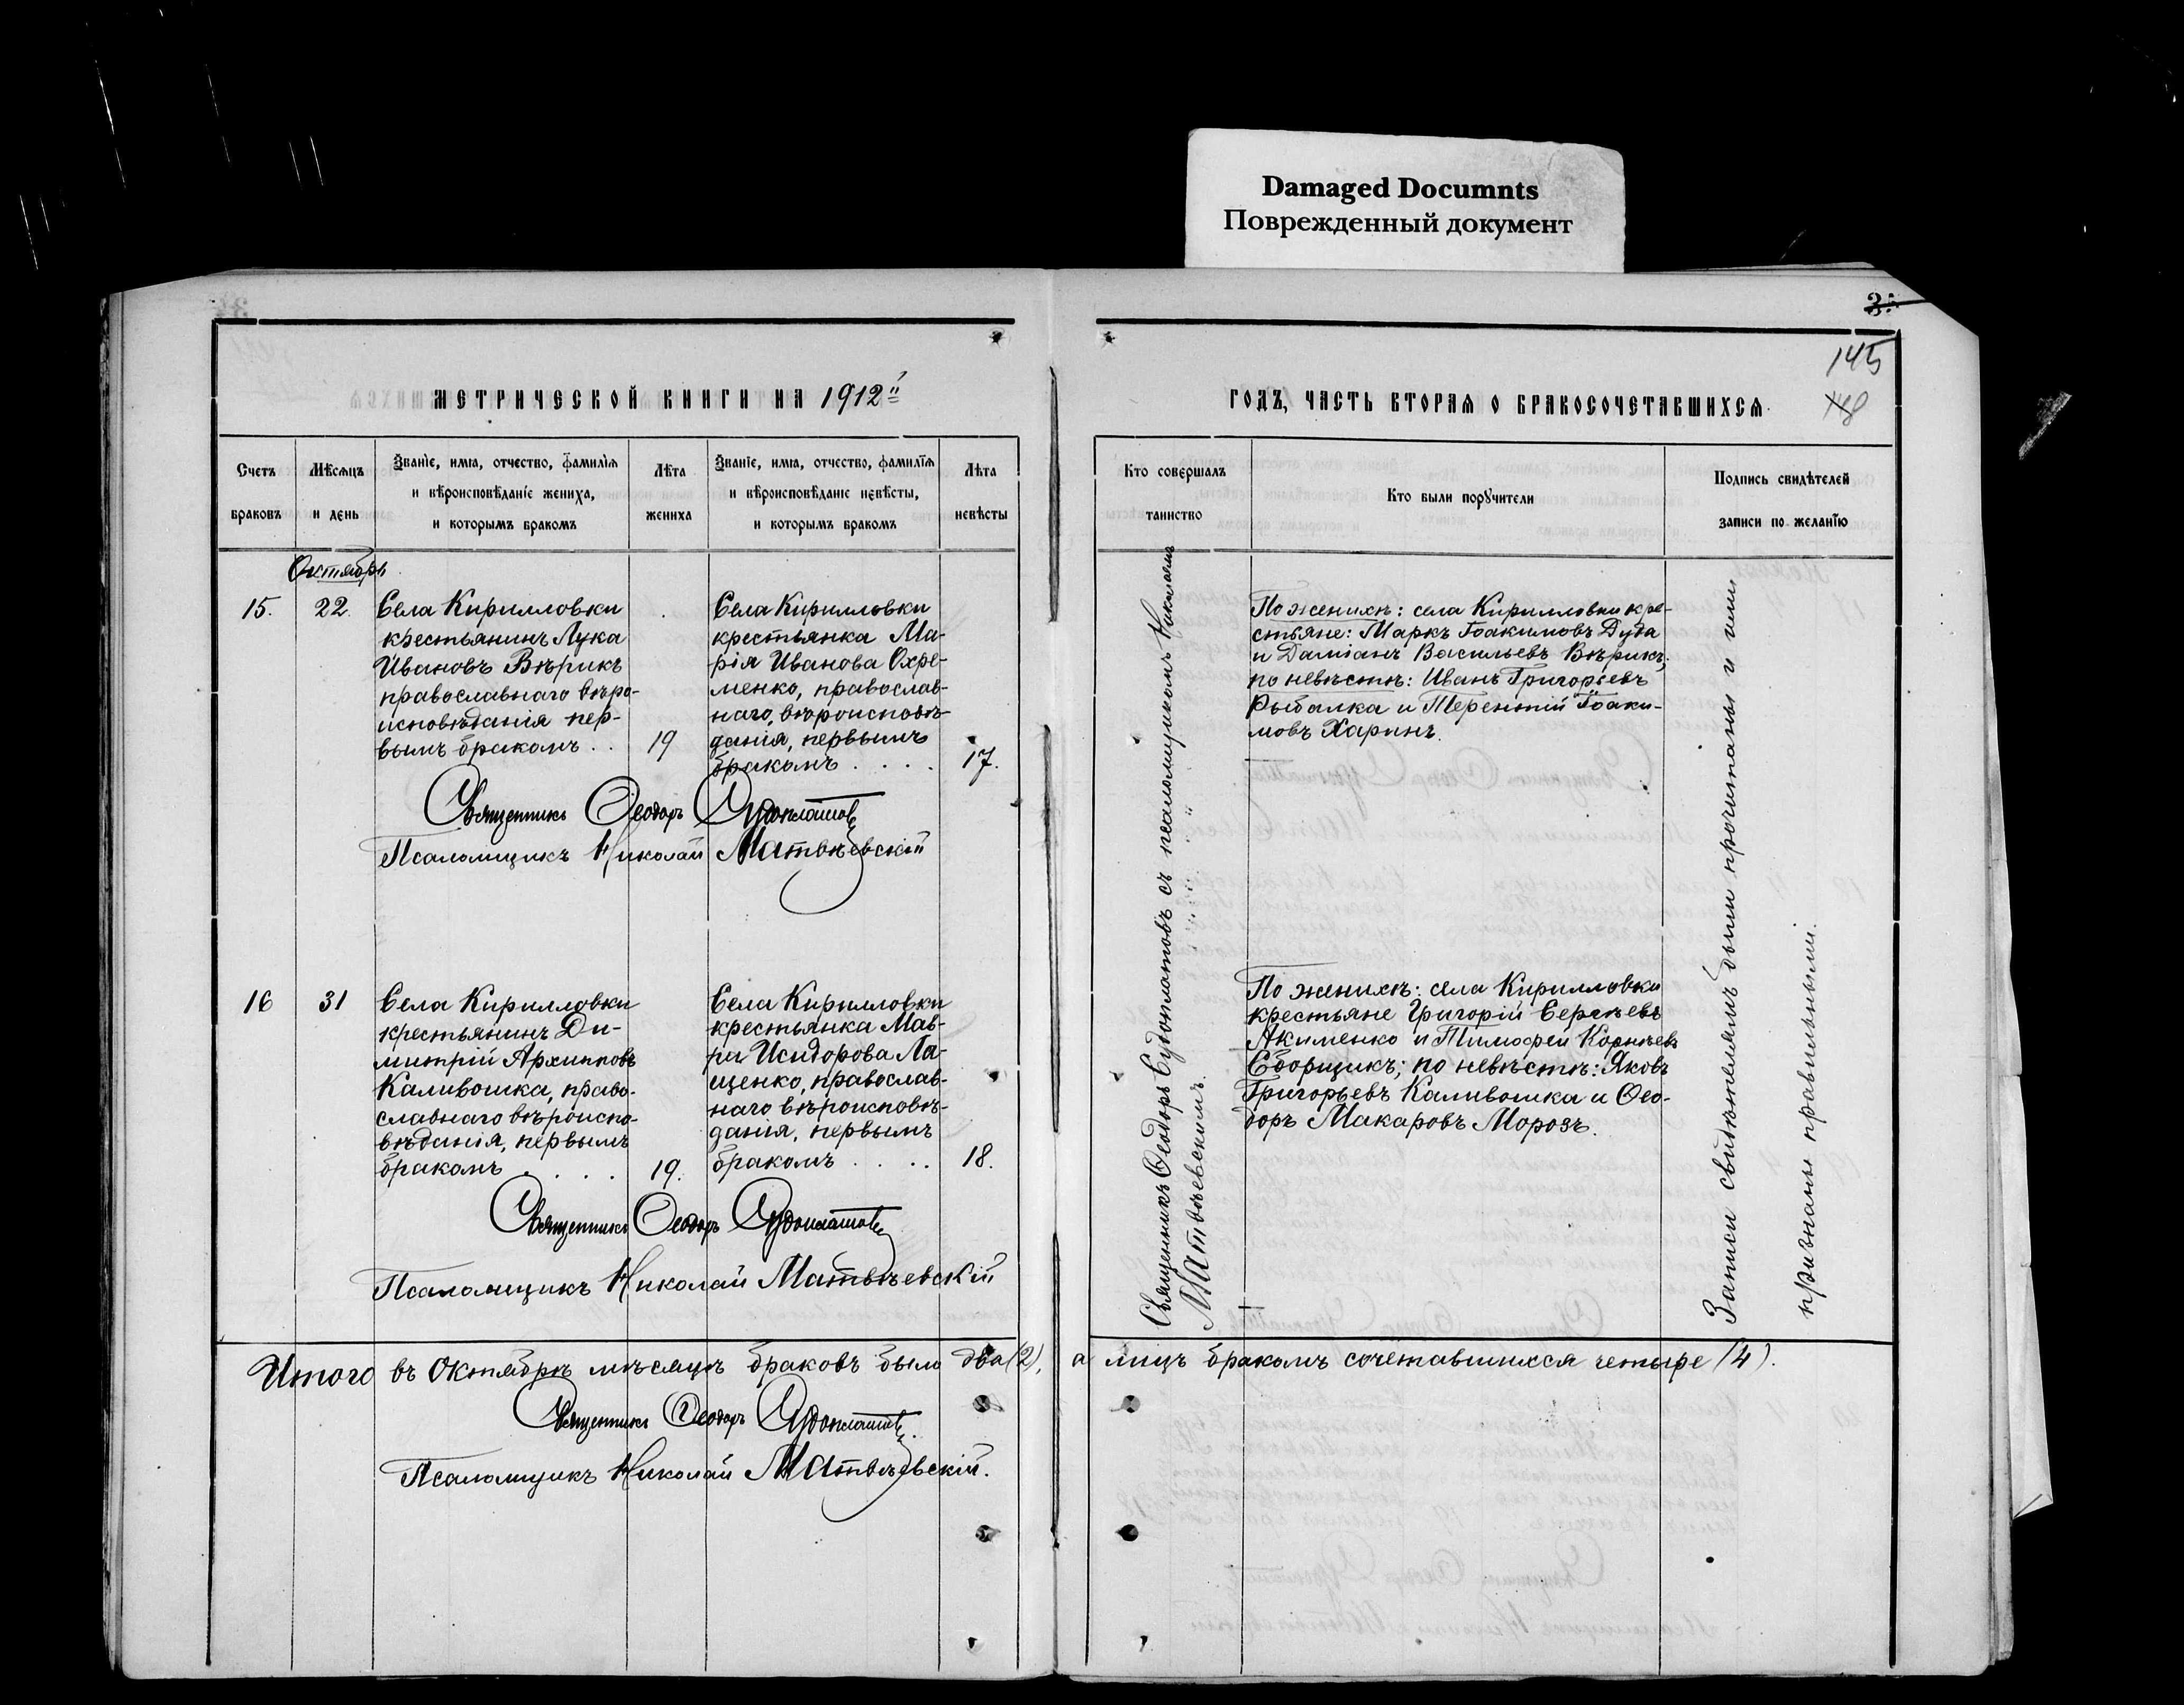 Damaged Documnts
Поврежденный документ
145
МЕТРИЧЕСКОЙ КНИГИ НА 1912
ГОДЪ, ЧАСТЬ ВТОРАЯ О БРАКОСОЧЕТАВШИХСЯ.
Счетъ
браковъ
Мѣсяцъ
и день
Званіе, имя, отчество, фамилія
и вѣроисповѣданіе жениха,
и которымъ бракомъ
Лѣта
жениха
Званіе, имя, отчество, фамилія
и вѣроисповѣданіе невѣсты,
и которымъ бракомъ
Лѣта
невѣсты
Кто совершалъ
таинство
Кто были поручители
Подпись свидѣтелей
записи по желанію
Октябрь
15.
22.
Села Кирилловки
крестьянинъ Лука
Ивановъ Вѣрикъ
православнаго вѣро-
исповѣданія пер-
вымъ бракомъ . .
19
Села Кирилловки
крестьянка Ма-
рія Иванова Охре-
менко, православ-
наго, вѣроисповѣ-
данія, первымъ
бракомъ . . . .
17.
По женихѣ: села Кирилловки кре-
стьяне: Маркъ Іоакимовъ Дуда
и Даміанъ Васильевъ Вѣрикъ;
по невѣстѣ: Иванъ Григорьевъ
Рыбалка и Терентій Іоаки-
мовъ Харинъ.
Священникъ Ѳеодоръ Судоплатовъ
Псаломщикъ Николай Матвѣевскій
16
31
Села Кирилловки
крестьянинъ Ди-
митрій Архиповъ
Каливошка, право-
славнаго вѣроиспо-
вѣданія, первымъ
бракомъ . . . .
19.
Села Кирилловки
крестьянка Мав-
ра Исидорова Ла-
щенко, православ-
наго вѣроисповѣ-
данія, первымъ
бракомъ . . . .
18.
По женихѣ: села Кирилловки
крестьяне Григорій Сергѣевъ
Акименко и Тимофей Корнѣевъ
Сборщикъ; по невѣстѣ: Яковъ
Григорьевъ Каливошка и Ѳео-
доръ Макаровъ Морозъ.
Священникъ Ѳеодоръ Судоплатовъ
Псаломщикъ Николай Матвѣевскій
Священникъ Ѳеодоръ Судоплатовъ съ псаломщикомъ Николаемъ
Матвѣевскимъ.
Записи свидѣтелямъ были прочитаны и ими
признаны правильными.
Итого въ Октябрѣ мѣсяцѣ браковъ было два (2), а лицъ бракомъ сочетавшихся четыре (4).
Священникъ Ѳеодоръ Судоплатовъ.
Псаломщикъ Николай Матвѣевскій.